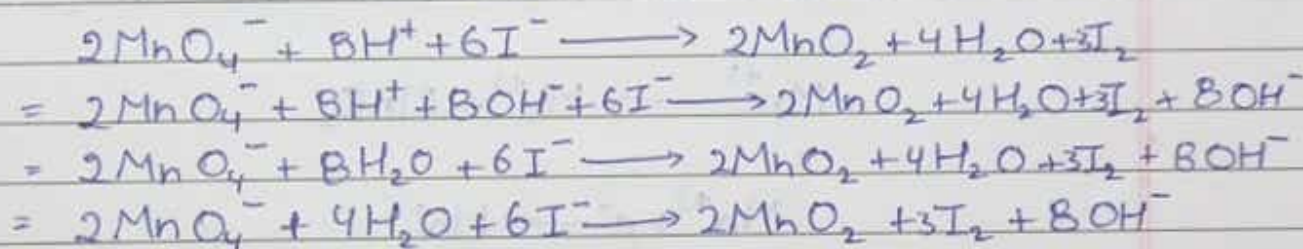 2MnO₄⁻ + 8H⁺ + 6I⁻ ⟶ 2MnO₂ + 4H₂O + 3I₂
= 2MnO₄⁻ + 8H⁺ + 8OH⁻ + 6I⁻ ⟶ 2MnO₂ + 4H₂O + 3I₂ + 8OH⁻
= 2MnO₄⁻ + 8H₂O + 6I⁻ ⟶ 2MnO₂ + 4H₂O + 3I₂ + 8OH⁻
= 2MnO₄⁻ + 4H₂O + 6I⁻ ⟶ 2MnO₂ + 3I₂ + 8OH⁻